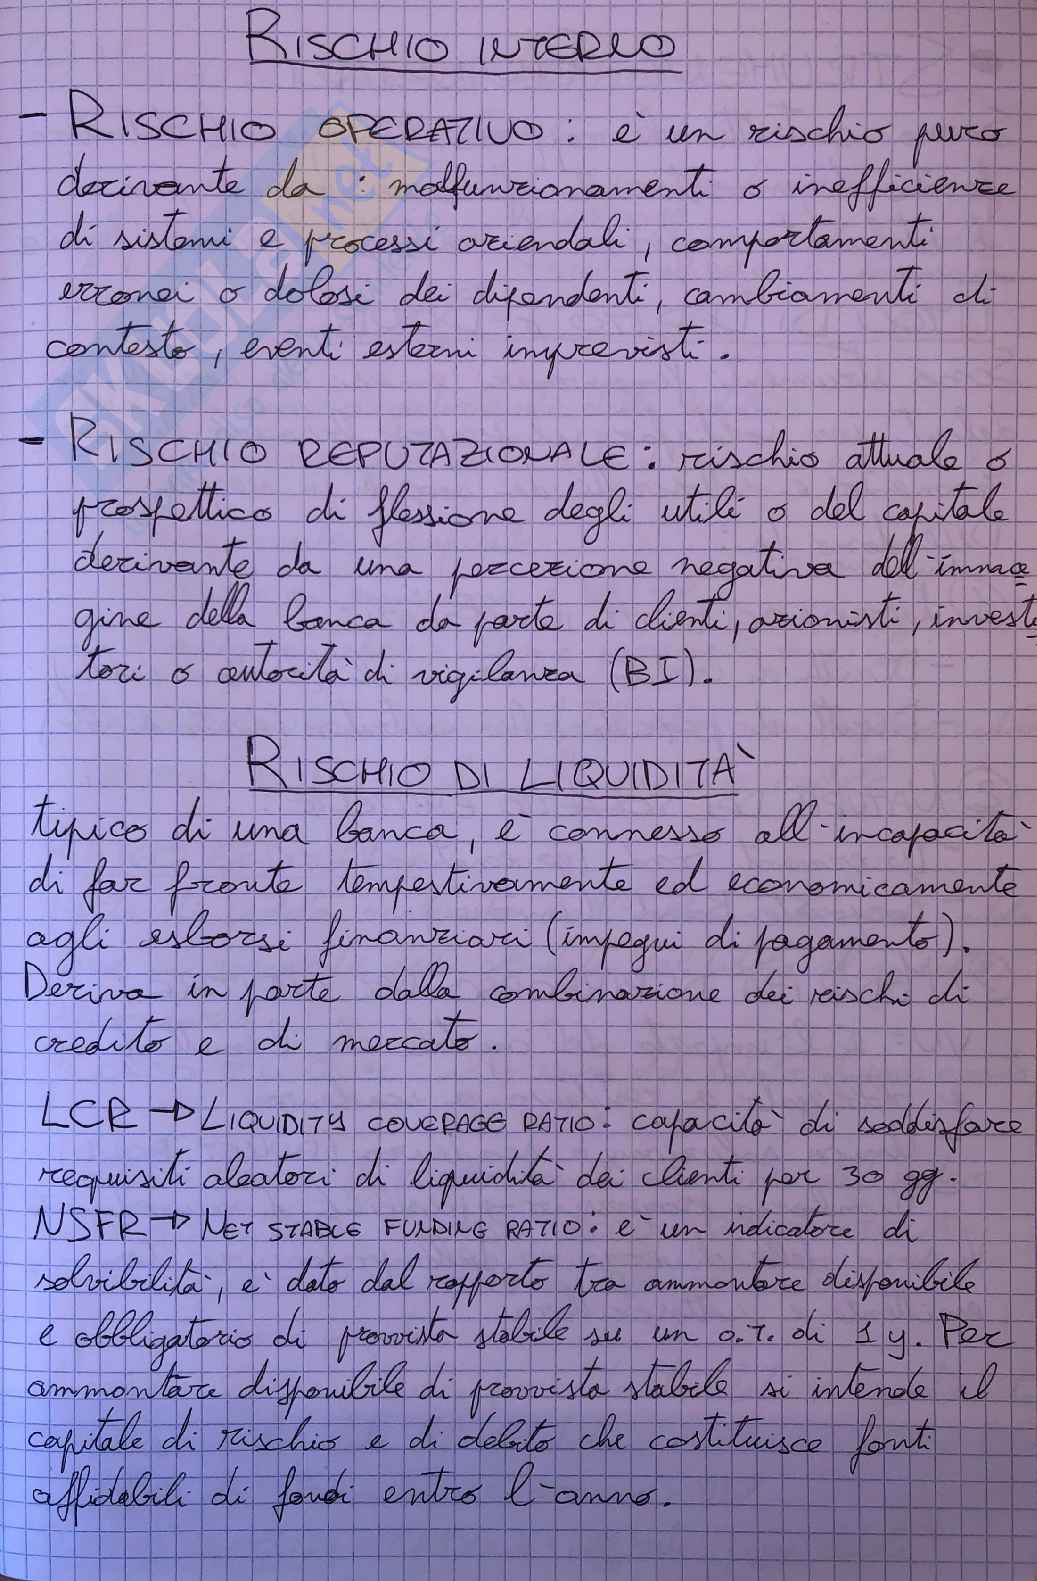 RISCHIO INTERNO
- RISCHIO OPERATIVO : è un rischio puro
derivante da : malfunzionamenti o inefficienze
di sistemi e processi aziendali, comportamenti
erronei o dolosi dei dipendenti, cambiamenti di
contesto, eventi esterni imprevisti.
- RISCHIO REPUTAZIONALE : rischio attuale o
prospettico di flessione degli utili o del capitale
derivante da una percezione negativa dell'imma
gine della banca da parte di clienti, azionisti, investi
tori o autorità di vigilanza (BI).
RISCHIO DI LIQUIDITÀ
tipico di una banca, è connesso all'incapacità
di far fronte tempestivamente ed economicamente
agli esborsi finanziari (impegni di pagamento).
Deriva in parte dalla combinazione dei rischi di
credito e di mercato.
LCR → LIQUIDITY COVERAGE RATIO : capacità di soddisfare
requisiti aleatori di liquidità dei clienti per 30 gg.
NSFR → NET STABLE FUNDING RATIO : è un indicatore di
solvibilità, è dato dal rapporto tra ammontare disponibile
e obbligatorio di provvista stabile su un o.t. di 1 y. Per
ammontare disponibile di provvista stabile si intende il
capitale di rischio e di debito che costituisce fonti
affidabili di fondi entro l'anno.
SKUOLA.net